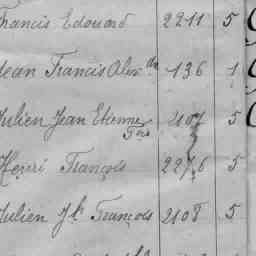 Francis Edouard 2211 5
Jean Francis Alexdre 136 1
Julien Jean Etienne 2107 5
Henri François 2276 5
Julien Jh François 2108 5